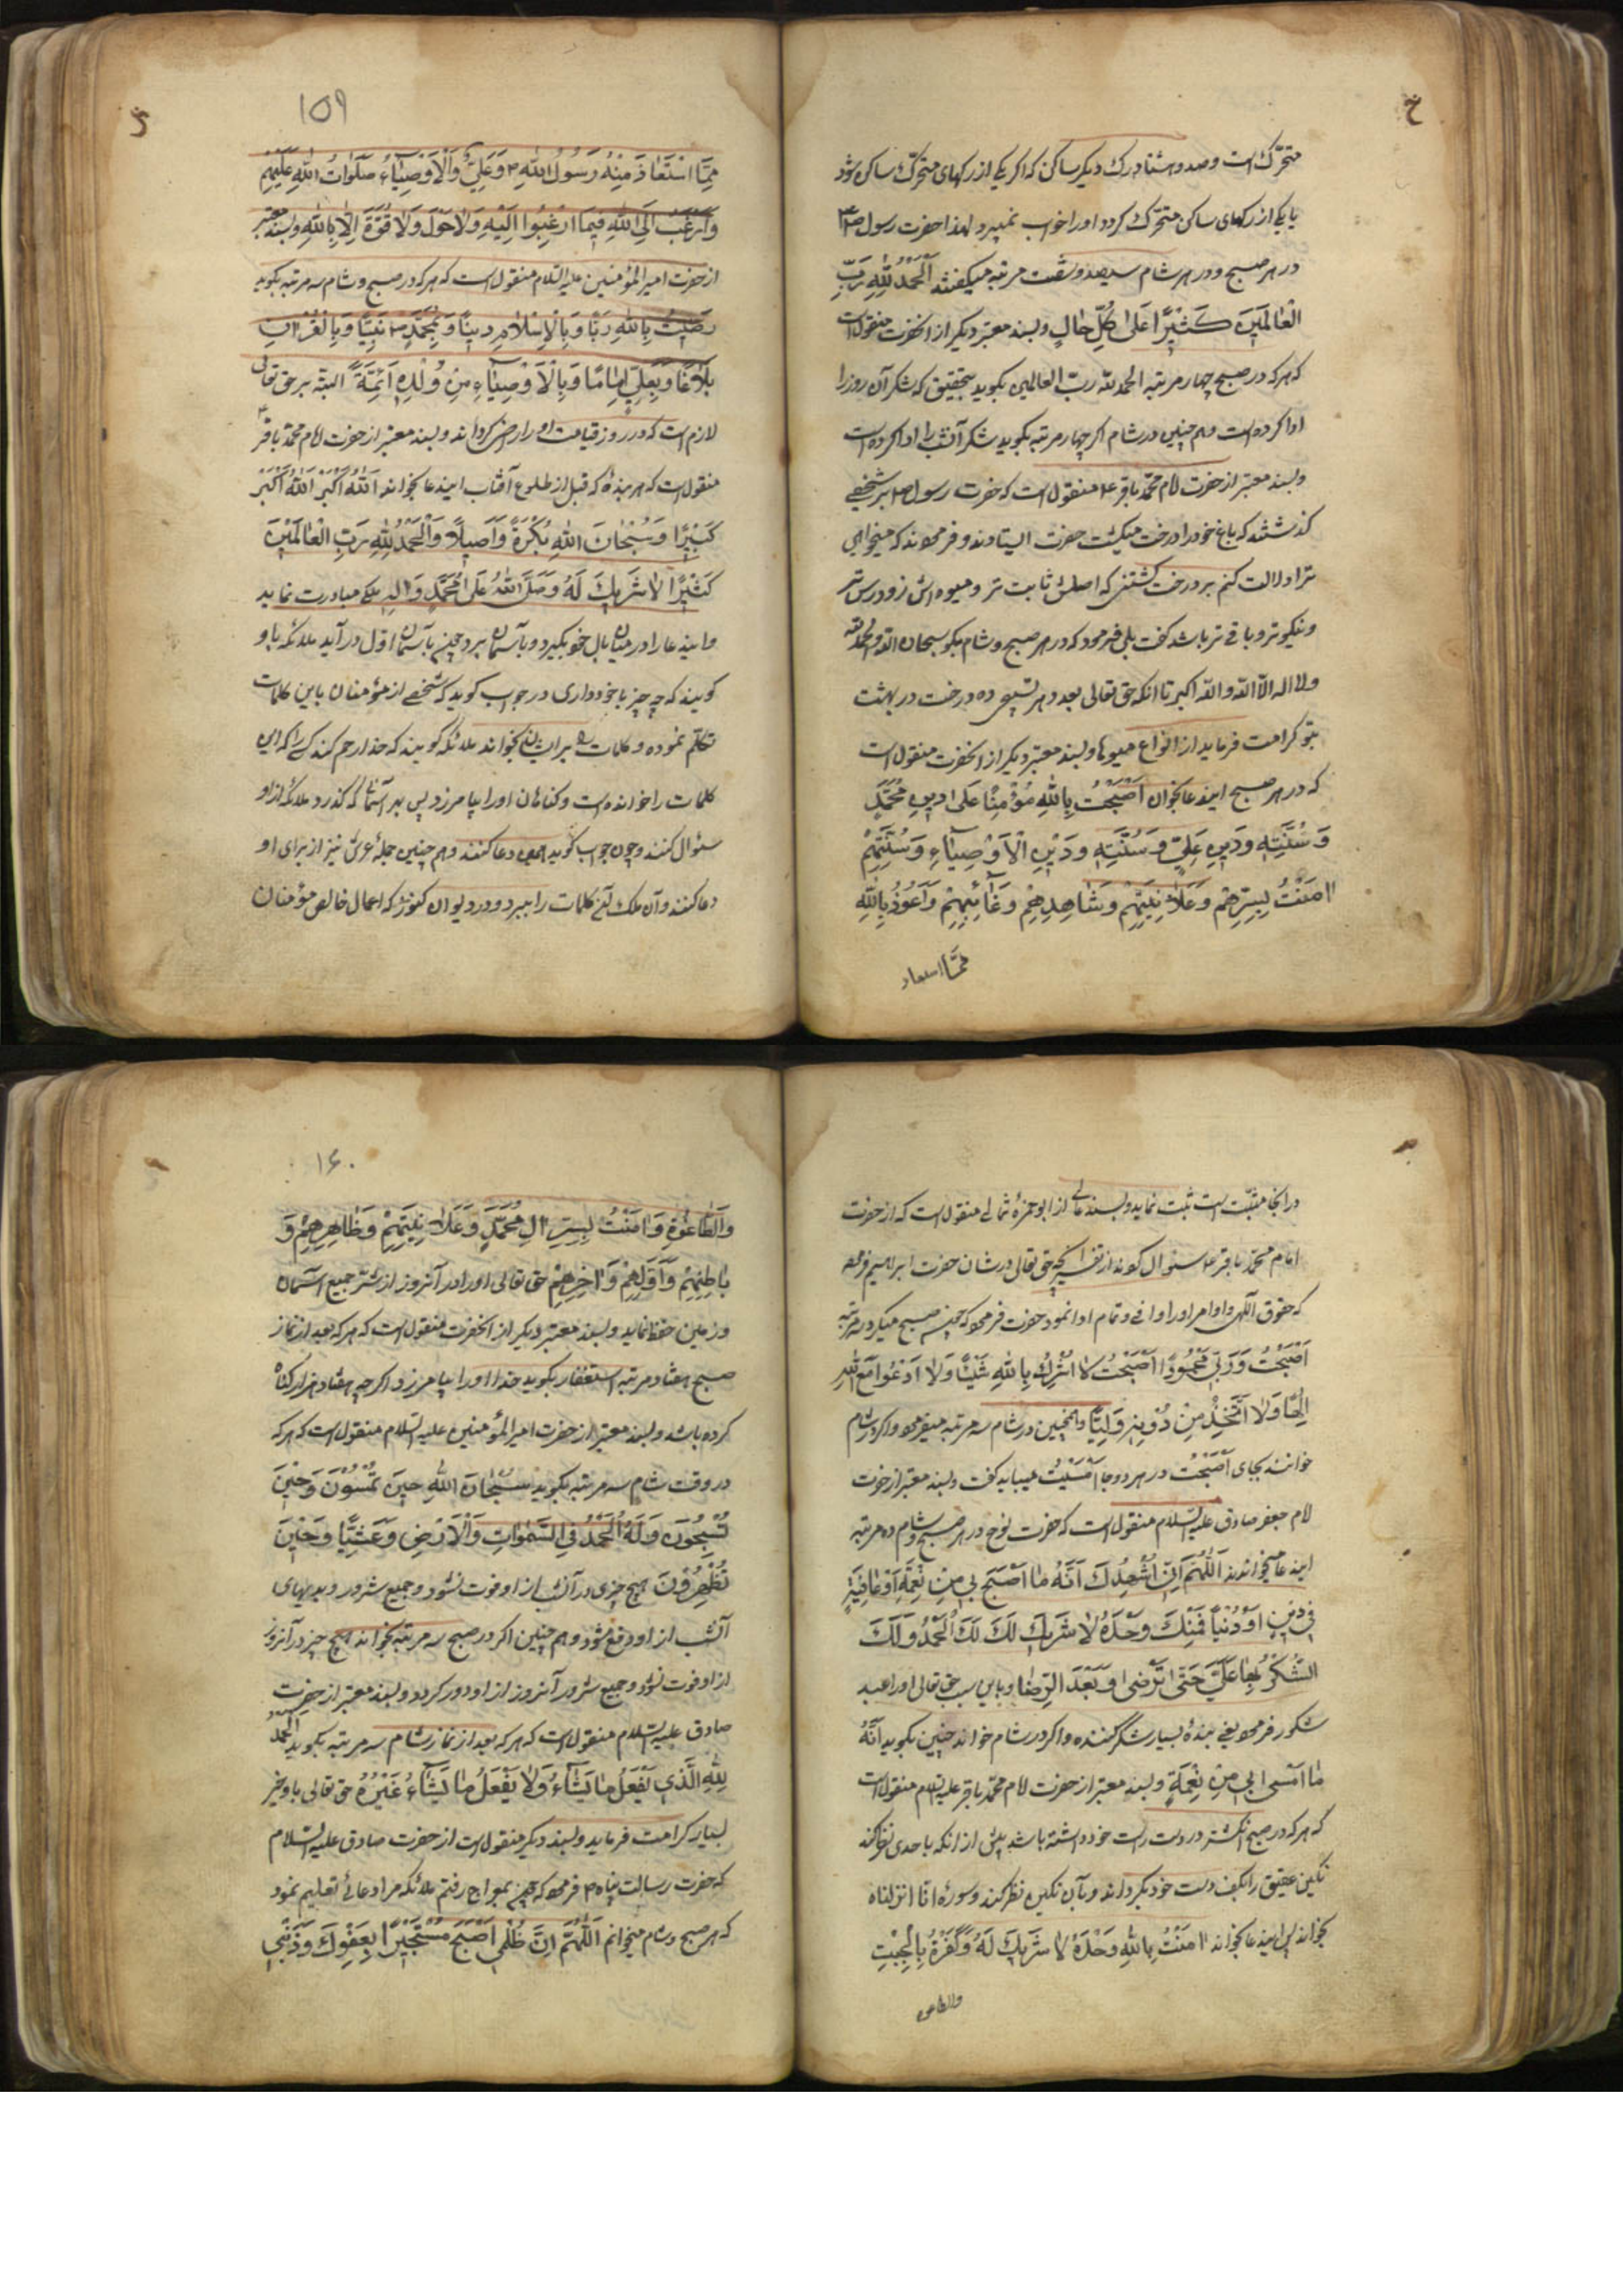 متحرک است و صد و هشتاد رک دیکر ساکن که اکر یکی از رکهای متحرک ساکن شود
یا یکی از رکهای ساکن متحرک کردد او را خواب نمیبرد لهذا حضرت رسول ص
در هر صبح و در هر شام سیصد و شصت مرتبه میکفتند اَلْحَمْدُ لِلّهِ رَبِّ
الْعالَمینَ کَثیرًا عَلی کُلِّ حالٍ و بسند معتبر دیکر از انحضرت منقول است
که هر که در صبح چهار مرتبه الحمد لله ربّ العالمین بکوید بتحقیق که شکر آن روز را
ادا کرده است و هم چنین در شام اکر چهار مرتبه بکوید شکر آنشب را ادا کرده است
و بسند معتبر از حضرت امام محمّد باقر ع منقول است که حضرت رسول ص بر شخصی
کذشتند که باغ خود را درخت میکشت حضرت ایستادند و فرمودند که میخواهی
ترا دلالت کنم بر درخت کشتنی که اصلش ثابت تر و میوه اش زودرس تر
و نیکوتر و باقی تر باشد کفت بلی فرمود که در هر صبح و شام بکو سبحان الله و الحمد لله
و لا اله الّا الله و الله اکبر تا انکه حق تعالی بعدد هر تسبیحی ده درخت در بهشت
بتو کرامت فرماید از انواع میوها و بسند معتبر دیکر از انحضرت منقول است
که در هر صبح ایندعا بخوان اَصْبَحْتُ بِاللهِ مُؤْمِنًا عَلی دینِ مُحَمَّدٍ
وَ سُنَّتِهِ وَ دینِ عَلِیٍّ وَ سُنَّتِهِ وَ دینِ الْاَوْصِیاءِ وَ سُنَّتِهِمْ
امَنْتُ بِسِرِّهِمْ وَ عَلانِیَتِهِمْ وَ شاهِدِهِمْ وَ غائِبِهِمْ وَ اَعُوذُ بِاللهِ
ممّا استعاذ
۱۵۹
مِمَّا اسْتَعاذَ مِنْهُ رَسُولُ اللهِ ص وَ عَلِیٌّ وَ الْاَوْصِیاءُ صَلَواتُ اللهِ عَلَیْهِمْ
وَ اَرْغَبُ اِلَی اللهِ فیما ارْغِبُوا اِلَیْهِ وَ لا حَوْلَ وَ لا قُوَّةَ اِلّا بِاللهِ و بسند معتبر
از حضرت امیر المؤمنین علیه السّلام منقول است که هر که در صبح و شام سه مرتبه بکوید
رَضیتُ بِاللهِ رَبًّا وَ بِالْاِسْلامِ دینًا وَ بِمُحَمَّدٍ ص نَبِیًّا وَ بِالْقُرْانِ
بَلاغًا وَ بِعَلِیٍّ اِمامًا وَ بِالْاَوْصِیاءِ مِنْ وُلْدِهِ اَئِمَّةً البته بر حق تعالی
لازم است که در روز قیامت او را راضی کرداند و بسند معتبر از حضرت امام محمّد باقر ع
منقول است که هر بندهٔ که قبل از طلوع آفتاب ایندعا بخواند اَللهُ اَکْبَرُ اَللهُ اَکْبَرُ
کَبیرًا وَ سُبْحانَ اللهِ بُکْرَةً وَ اَصیلًا وَ الْحَمْدُ لِلّهِ رَبِّ الْعالَمینَ
کَثیرًا لا شَریکَ لَهُ وَ صَلَّی اللهُ عَلی مُحَمَّدٍ وَ الِهِ ملکی مبادرت نماید
و ایندعا را در میان بال خود بکیرد و بآسمان برد چون بآسمان اوّل در آید ملائکه باو
کویند که چه چیز با خود داری در جواب کوید که شخصی از مؤمنان باین کلمات
تکلّم نموده و کلمات را بر ایشان بخواند ملائکه کویند که خدا رحم کند کسی را که این
کلمات را خوانده است و کناهان او را بیامرزد پس بهر آسمانی که کذرد ملائکه از او
سئوال کنند و چون جواب کوید همین دعا کنند و هم چنین حملهٔ عرش نیز از برای او
دعا کنند و آن ملک آن کلمات را ببرد و در دیوان کنوز که اعمال خالص مؤمنان
در آنجا مثبت است ثبت نماید و بسند عالی از ابو حمزهٔ ثمالی منقول است که از حضرت
امام محمّد باقر ع سئوال کردند از تفسیر انچه حق تعالی در شان حضرت ابراهیم فرموده
که حقوق الهی و اوامر او را وافی و تمام ادا نمود حضرت فرمود که چون صبح میکرد سه مرتبه
اَصْبَحْتُ وَ رَبّی مَحْمُودًا اَصْبَحْتُ لا اُشْرِکُ بِاللهِ شَیْئًا وَ لا اَدْعُوا مَعَ اللهِ
اِلهًا وَ لا اَتَّخِذُ مِنْ دُونِهِ وَلِیًّا و همچنین در شام سه مرتبه میفرمود و اکر در شام
خوانند بجای اَصْبَحْتُ در هر دو جا اَمْسَیْتُ میباید کفت و بسند معتبر از حضرت
امام جعفر صادق علیه السّلام منقول است که حضرت نوح در هر صبح و شام ده مرتبه
ایندعا میخواندند اَللّهُمَّ اِنّی اُشْهِدُکَ اَنَّهُ ما اَصْبَحَ بی مِنْ نِعْمَةٍ اَوْ عافِیَةٍ
فی دینٍ اَوْ دُنْیا فَمِنْکَ وَحْدَهُ لا شَریکَ لَکَ لَکَ الْحَمْدُ وَ لَکَ
الشُّکْرُ بِها عَلَیَّ حَتّی تَرْضی وَ بَعْدَ الرِّضا و باین سبب حق تعالی او را عبد
شکور فرمود یعنی بندهٔ بسیار شکر کننده و اکر در شام خواند چنین بکوید اَنَّهُ
ما اَمْسی بی مِنْ نِعْمَةٍ و بسند معتبر از حضرت امام محمّد باقر علیه السّلام منقول است
که هر که در صبح انکشتر در دست راست خود داشته باشد پیش از انکه باحدی نظر کند
نکین عقیق را بکف دست خود بکرداند و بآن نکین نظر کند و سورهٔ انّا انزلناه
بخواند پس ایندعا بخواند امَنْتُ بِاللهِ وَحْدَهُ لا شَریکَ لَهُ وَ کَفَرْتُ بِالْجِبْتِ
والطاغوت
۱۶۰
وَ الطّاغُوتِ وَ امَنْتُ بِسِرِّ الِ مُحَمَّدٍ وَ عَلانِیَتِهِمْ وَ ظاهِرِهِمْ وَ
باطِنِهِمْ وَ اَوَّلِهِمْ وَ اخِرِهِمْ حق تعالی او را در آنروز از شرّ جمیع آسمان
و زمین حفظ نماید و بسند معتبر دیکر از انحضرت منقول است که هر که بعد از نماز
صبح هفتاد مرتبه استغفار بکوید خدا او را بیامرزد اکر چه هفتاد هزار کناه
کرده باشد و بسند معتبر از حضرت امیر المؤمنین علیه السّلام منقول است که هر که
در وقت شام سه مرتبه بکوید سُبْحانَ اللهِ حینَ تُمْسُونَ وَ حینَ
تُصْبِحُونَ وَ لَهُ الْحَمْدُ فِی السَّمواتِ وَ الْاَرْضِ وَ عَشِیًّا وَ حینَ
تُظْهِرُونَ هیچ چیزی در آنشب از او فوت نشود و جمیع شرور و بدیهای
آنشب از او دفع شود و هم چنین اکر در صبح سه مرتبه بخواند هیچ چیز در آنروز
از او فوت نشود و جمیع شرور آنروز از او دور کردد و بسند معتبر از حضرت
صادق علیه السّلام منقول است که هر که بعد از نماز شام سه مرتبه بکوید اَلْحَمْدُ
لِلّهِ الَّذی یَفْعَلُ ما یَشاءُ وَ لا یَفْعَلُ ما یَشاءُ غَیْرُهُ حق تعالی باو خیر
بسیار کرامت فرماید و بسند دیکر منقول است از حضرت صادق علیه السّلام
که حضرت رسالت پناه ص فرمود که چون بمعراج رفتم ملائکه مرا دعائی تعلیم نمود
که هر صبح و شام میخوانم اَللّهُمَّ اِنَّ ظُلْمی اَصْبَحَ مُسْتَجیرًا بِعَفْوِکَ وَ ذَنْبی